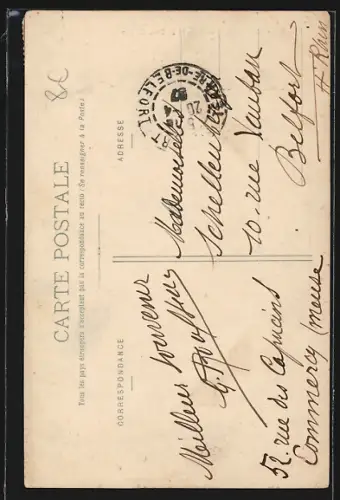 CARTE POSTALE
Tous les pays étrangers n'acceptent pas la correspondance au recto (Se renseigner à la Poste)
CORRESPONDANCE
ADRESSE
Meilleurs souvenirs
52, rue des Capucins
Commercy (Meuse
Mademoiselle
10, rue Vauban
Belfort
Ht Rhin
RE-DE-BELFORT
8€